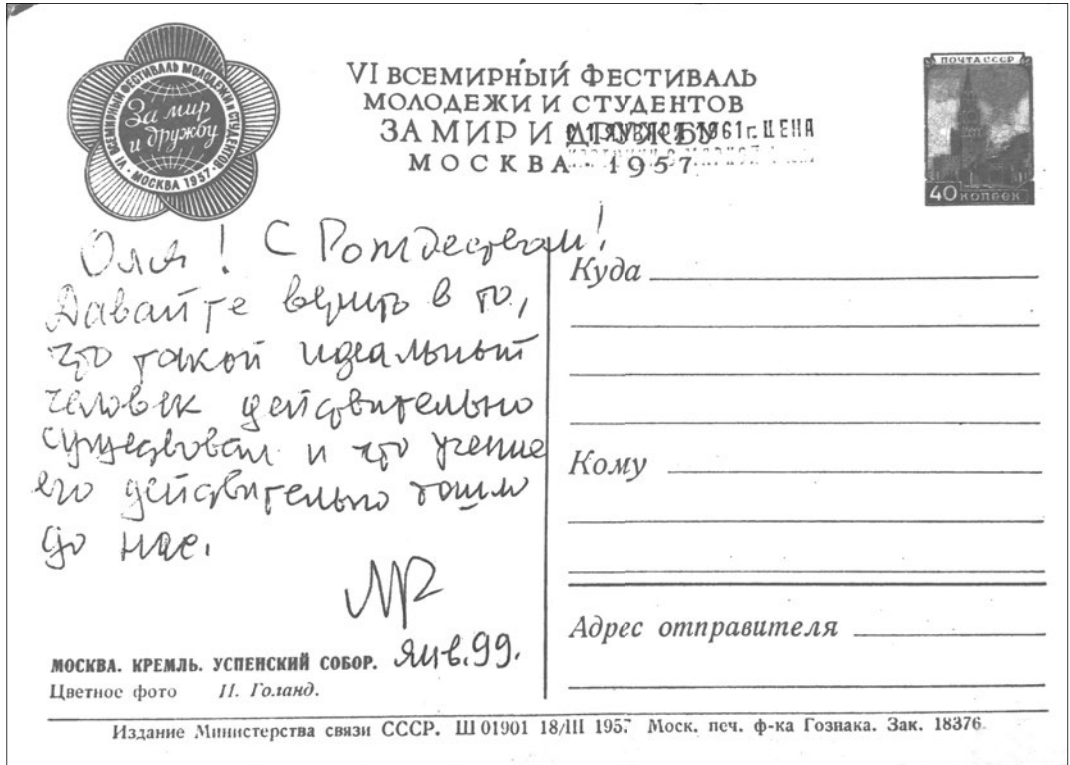 VI ВСЕМИРНЫЙ ФЕСТИВАЛЬ МОЛОДЕЖИ И СТУДЕНТОВ
За мир
и дружбу
МОСКВА 1957
VI ВСЕМИРНЫЙ ФЕСТИВАЛЬ
МОЛОДЕЖИ И СТУДЕНТОВ
ЗА МИР И ДРУЖБУ
МОСКВА 1957
1961 г. ЦЕНА
ПОЧТА СССР
40 КОПЕЕК
Оля! С Рождеством!
Давайте верить в то,
что такой идеальный
человек действительно
существовал и что учение
его действительно дошло
до нас.
янв. 99.
МОСКВА. КРЕМЛЬ. УСПЕНСКИЙ СОБОР.
Цветное фото И. Голанд.
Куда
Кому
Адрес отправителя
Издание Министерства связи СССР. Ш 01901 18/III 1957 Моск. печ. ф-ка Гознака. Зак. 18376.